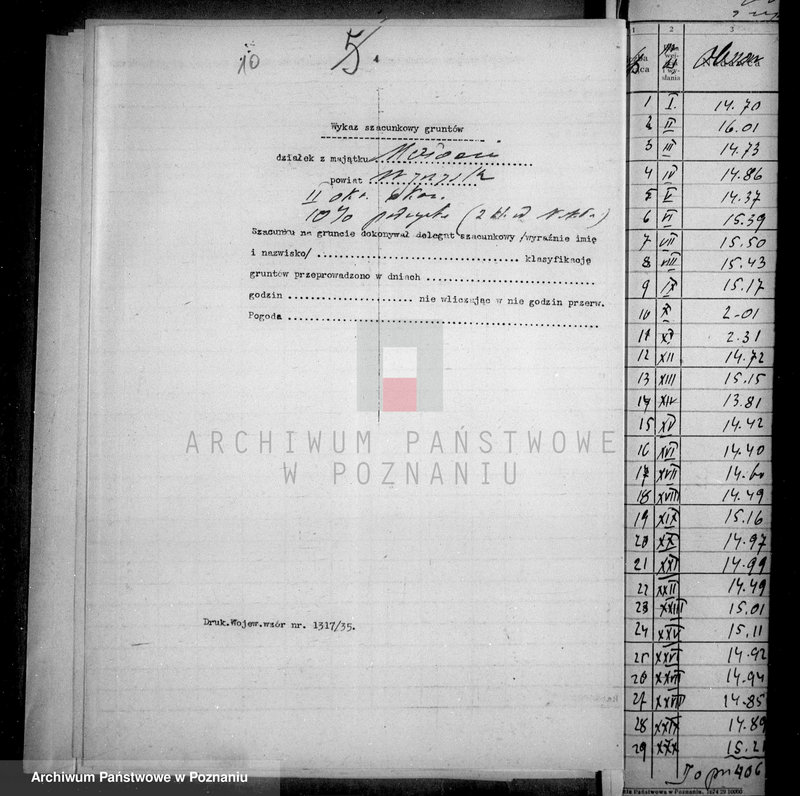 10 5.
Wykaz szacunkowy gruntów
działek z majątku
powiat Wyrzysk
II okr. ekon.
10%
Szacunku na gruncie dokonywał delegat szacunkowy /wyraźnie imię
i nazwisko/ klasyfikację
gruntów przeprowadzono w dniach
godzin nie wliczając w nie godzin przerw.
Pogoda
ARCHIWUM PAŃSTWOWE
W POZNANIU
Druk.Wojew.wzór nr. 1317/35.
Archiwum Państwowe w Poznaniu
1 2 3
1 I. 14.70
2 II 16.01
3 III 14.73
4 IV 14.86
5 V 14.37
6 VI 15.39
7 VII 15.50
8 VIII 15.43
9 IX 15.17
10 X 2-01
11 XI 2.31
12 XII 14.72
13 XIII 15.15
14 XIV 13.81
15 XV 14.42
16 XVI 14.40
17 XVII 14.60
18 XVIII 14.49
19 XIX 15.16
20 XX 14.97
21 XXI 14.99
22 XXII 14.49
23 XXIII 15.01
24 XXV 15.11
25 XXVI 14.92
26 XXVII 14.94
27 XXVIII 14.85
28 XXIX 14.89
29 XXX 15.21
406
Państwowa w Poznaniu.